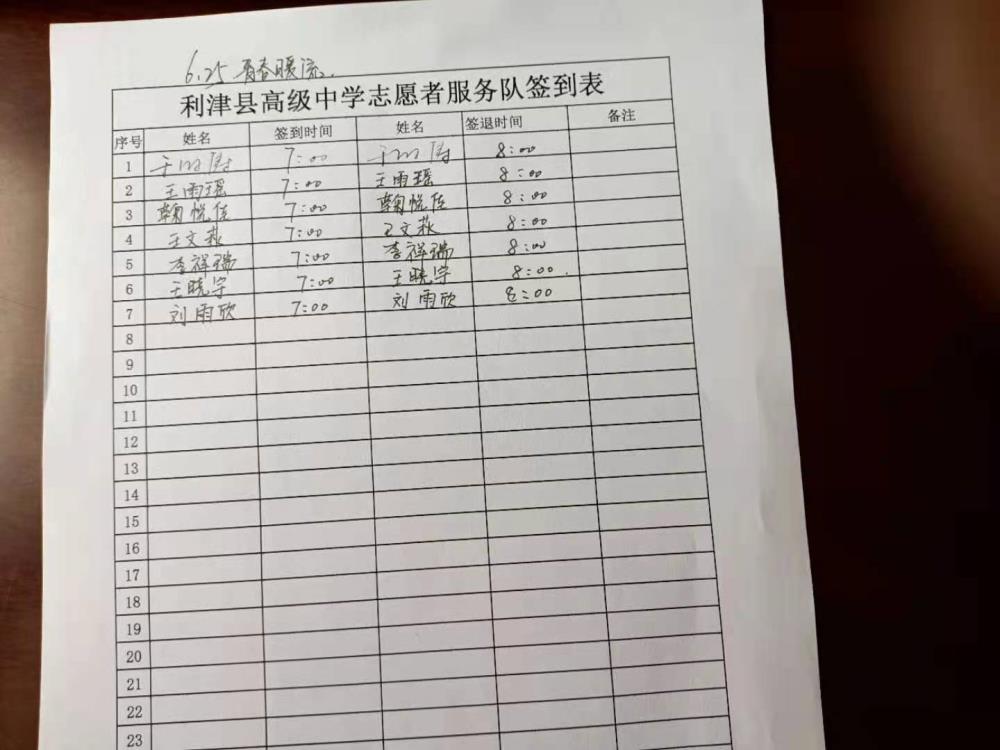 6.25 青春暖流.
利津县高级中学志愿者服务队签到表
序号 姓名 签到时间 姓名 签退时间 备注
1 7:00 8:00
2 王雨瑶 7:00 王雨瑶 8:00
3 鞠悦佳 7:00 鞠悦佳 8:00
4 王文萩 7:00 王文萩 8:00
5 李祥瑞 7:00 李祥瑞 8:00
6 王晓宇 7:00 王晓宇 8:00.
7 刘雨欣 7:00 刘雨欣 8:00
8
9
10
11
12
13
14
15
16
17
18
19
20
21
22
23